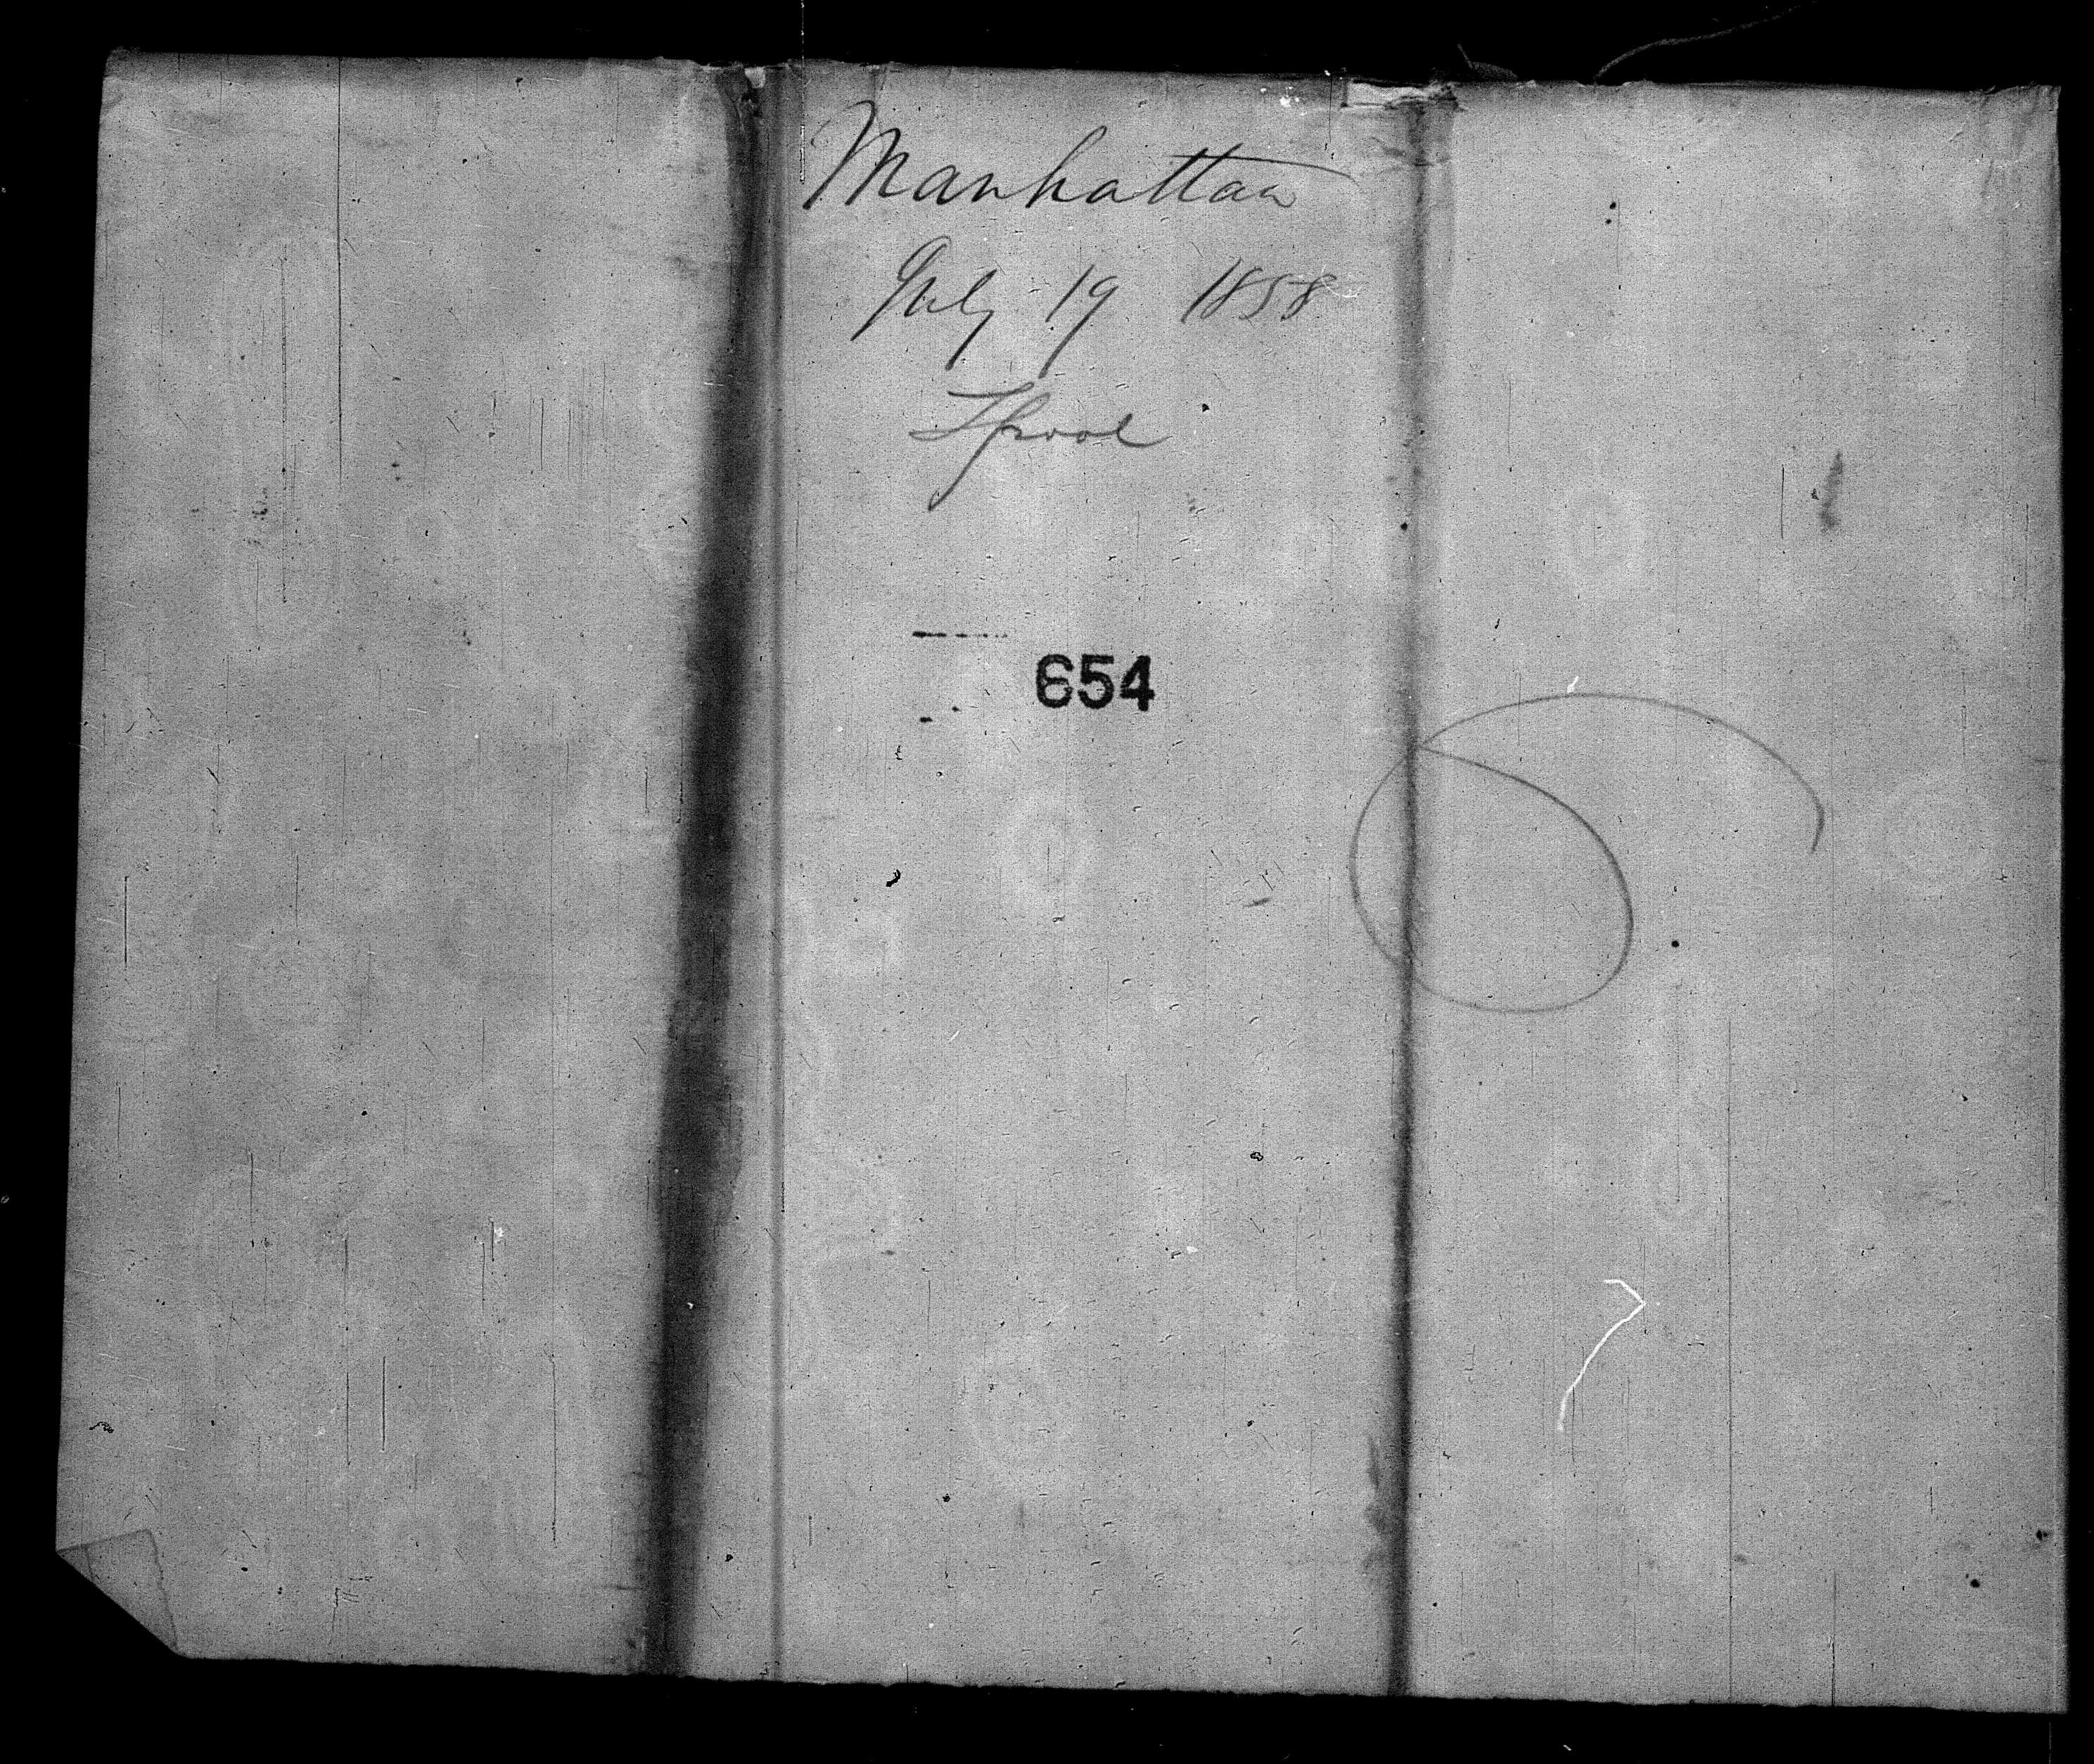 Manhattan
July 19 1858
Lpool
654